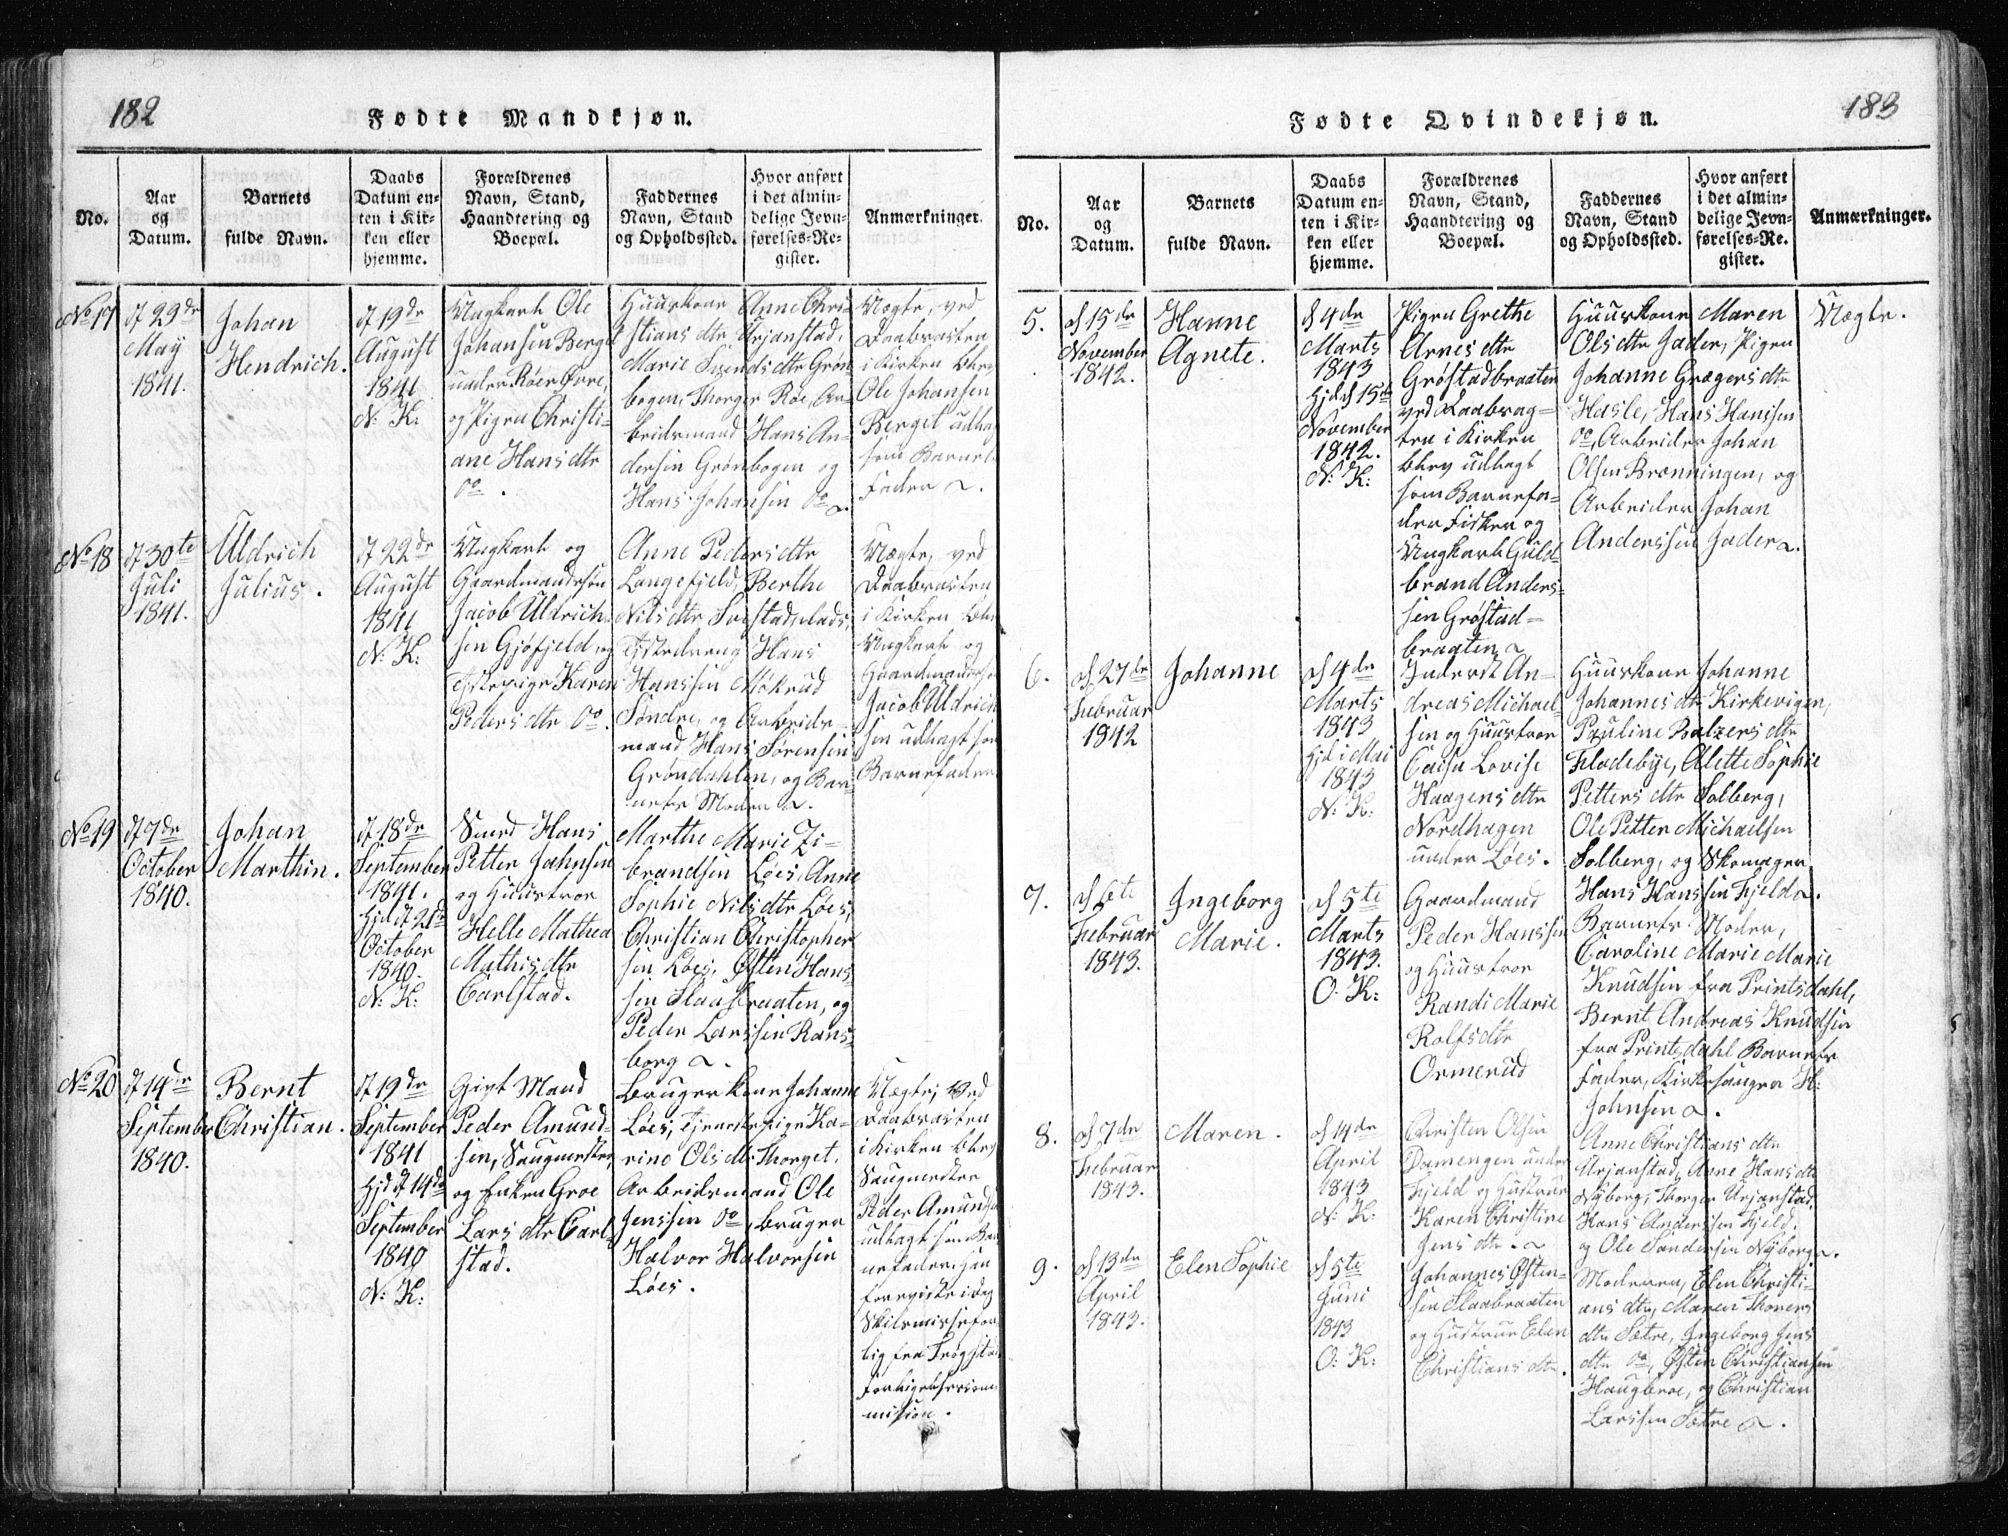 182
Fødte Mandkjøn.
No.
Aar
og
Datum.
Barnets
fulde Navn.
Daabs
Datum en-
ten i Kir-
ken eller
hjemme.
Forældrenes
Navn, Stand,
Haandtering og
Boepæl.
Faddernes
Navn, Stand
og Opholdssted.
Hvor anført
i det almin-
delige Jevn-
førelses-Re-
gister.
Anmærkninger.
No 17
d 29de
May
1841.
Johan
Hendrich.
d 19de
August
1841
N: K:
Ungkarl Ole
Johansen Berget
under Røer Øvre,
og Pigen Christi-
ane Hans dtr
do.
Huuskone Anne Chri-
stians dtr Urjanstad,
Marie Svends dtr Grøn-
bogen, Thorger Roe, Ar-
beidsmand Hans An-
dersen Grønbogen og
Hans Johansen do
Uægte, ved
Daabsacten
i Kirken blev
Ole Johansen
Berget udlagt
som Barnets
Fader
No 18
d 30te
Juli
1841.
Uldrich
Julius.
d 22de
August
1841
N: K:
Ungkarl og
Gaardmandssøn
Jacob Uldrich-
sen Gjøfjeld og
Pige Karen
Peders dtr do.
Anne Peders dtr
Langefjeld, Berthe
Nils dtr
Hans
Hanssen Møkrud
Søndre, og Arbeids-
mand Hans Sørensen
Grøndahlen, og Bar-
nets Moder
Uægte, ved
Daabsacten
i Kirken blev
Ungkarl og
Gaardmandssøn
Jacob Uldrich-
sen udlagt som
Barnefader
No 19
d 7de
October
1840.
Johan
Marthin.
d 18de
September
1841.
Hjd d 21de
October
1840.
N: K:
Smed Hans
Petter Jahnsen
og Huustroe
Helle Mathea
Mathis dtr
Carlstad.
Marthe Marie Zi-
brandsen Løes, Anne
Sophie Nils dtr Løes,
Christian Christopher-
sen Løes, Østen Hans-
sen Slaabraaten, og
Peder Larssen Rans-
borg
No 20
d 14de
September
1840.
Bernt
Christian.
d 19de
September
1841
Hjd d 14de
September
1840
N: K:
Givt Mand
Peder Amund-
sen, Saugmester,
og Enken Groe
Lars dtr Carl-
stad.
Brugerkone Johanne
Løes, Tjenestepige Ka-
rine Ols dtr Thorget,
Arbeidsmand Ole
Jenssen do, Bruger
Halvor Halvorsen
Løes.
Uægte, Ved
Daabsacten
i Kirken blev
Saugmester
Peder Amundsen
udlagt som Bar-
nefader. Han
foreviste i dag
Skilsmissefor-
lig fra Trøgstad
Forligelsescom-
mission.
183
Fødte Qvindekjøn.
No.
Aar
og
Datum.
Barnets
fulde Navn.
Daabs
Datum en-
ten i Kir-
ken eller
hjemme.
Forældrenes
Navn, Stand,
Haandtering og
Boepæl.
Faddernes
Navn, Stand
og Opholdssted.
Hvor anført
i det almin-
delige Jevn-
førelses-Re-
gister.
Anmærkninger.
5.
d 15de
November
1842.
Hanne
Agnete.
d 4de
Marts
1843
Hjd d 15de
November
1842.
N: K:
Pigen Grethe
Arnes dtr
Grøstadbraaten
ved Daabsag-
ten i Kirken
blev udlagt
som Barnefa-
der Fisker og
Ungkarl Guld-
brand Anders-
sen Grøstad-
braaten
Huuskone Maren
Ols dtr Jader, Pigen
Johanne Grægers dtr
Hasle, Hans Hanssen
do, Arbeider Johan
Olsen Brænningen, og
Arbeider Johan
Anderssen Jader
Uægte.
6.
d 27de
Februar
1842
Johanne
d 4de
Marts
1843
Hjd i Mai
1843
N: K:
Inderst An-
dreas Michael-
sen og Huustroe
Caisa Lovise
Haagens dtr
Nordhagen
under Løes.
Huuskone Johanne
Johannes dtr Kirkevigen,
Pauline Balzers dtr
Fladebye, Alette Sophie
Petters dtr Solberg,
Ole Petter Michaelsen
Solberg, og Skomager
Hans Hanssen Fjeld
7.
d 6te
Februar
1843.
Ingeborg
Marie.
d 5te
Marts
1843.
O. K:
Gaardmand
Peder Hanssen
og Huustroe
Randi Marie
Rolfs dtr
Ormerud
Barnets Moder,
Caroline Marie Marie
Knudsen fra Printsdahl,
Bernt Andreas Knudsen
fra Printsdahl Barnets
Fader, Kirkesanger H:
Johnsen
8.
d 7de
Februar
1843.
Maren.
d 14de
April
1843
N: K:
Christen Olsen
Damengen under
Fjeld og Hustrue
Karen Christine
Jens dtr.
Anne Christians dtr
Urjanstad, Anne Hans dtr
Nyborg, Thorger Urjanstad,
Hans Anderssen Fjeld,
og Ole Sandersen Nyborg
9.
d 13de
April
1843.
Elen Sophie
d 5te
Juni
1843
O: K:
Johannes Østen-
sen Slaabraaten
og Hustrue Elen
Christians dtr.
Moderen, Elen Christi-
ans dtr, Maren Thorers
dtr Sætre, Ingeborg Jens
dtr do, Østen Christiansen
Haugbroe, og Christian
Larssen Sætre